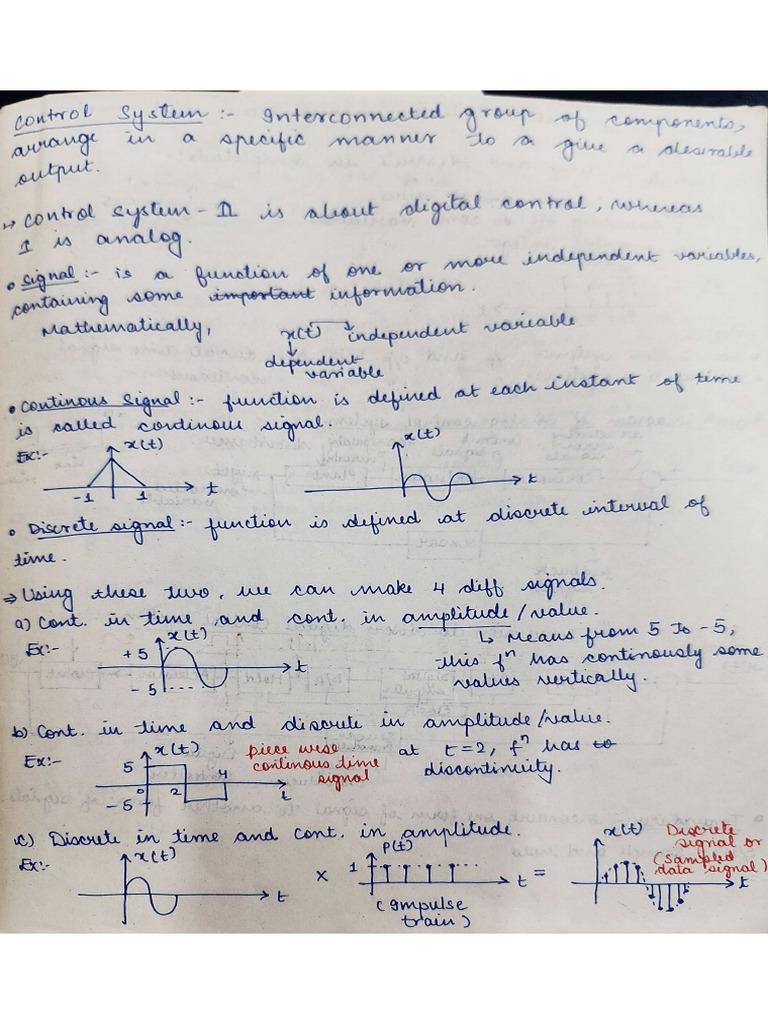 Control System :- Interconnected group of components,
arrange in a specific manner to a give a desirable
output.
↦ Control System - II is about digital control, whereas
I is analog.
• Signal :- is a function of one or more independent variables,
containing some important information.
Mathematically, x(t) independent variable
dependent
variable
• Continous Signal :- function is defined at each instant of time
is called continous signal.
Ex:- x(t) x(t)
-1 1 t t
• Discrete signal :- function is defined at discrete interval of
time.
⇒ Using these two, we can make 4 diff signals.
a) Cont. in time and cont. in amplitude / value.
↳ Means from 5 to -5,
Ex:- +5 x(t) t this fⁿ has continously some
-5 values vertically.
b) Cont. in time and discrete in amplitude / value.
Ex:- x(t) piece wise at t=2, fⁿ has to
5 0 2 4 t continous time discontinuity.
-5 signal
c) Discrete in time and cont. in amplitude.
Ex:- x(t) t × P(t) 1 t = x(t) t Discrete
signal or
(sampled
data signal)
(Impulse
train)